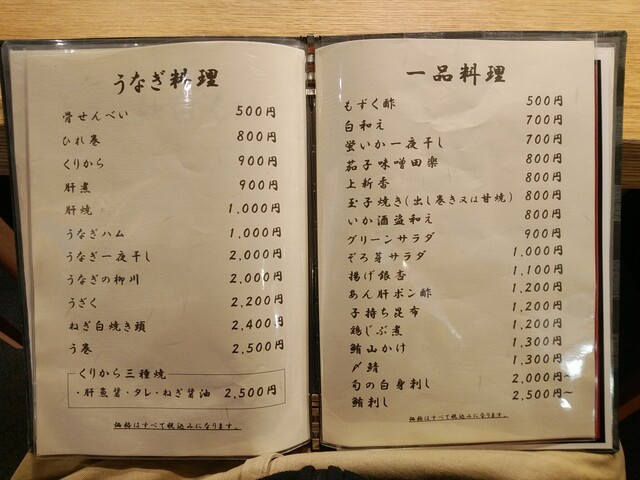 うなぎ料理
骨せんべい 500円
ひれ巻 800円
くりから 900円
肝煮 900円
肝焼 1,000円
うなぎハム 1,000円
うなぎ一夜干し 2,000円
うなぎの柳川 2,000円
うざく 2,200円
ねぎ白焼き頭 2,400円
う巻 2,500円
くりから三種焼
・肝煮醤・タレ・ねぎ醤油 2,500円
価格はすべて税込みになります。
一品料理
もずく酢 500円
白和え 700円
蛍いか一夜干し 700円
茄子味噌田楽 800円
上新香 800円
玉子焼き(出し巻き又は甘焼) 800円
いか酒盗和え 800円
グリーンサラダ 900円
ぞろ芽サラダ 1,000円
揚げ銀杏 1,100円
あん肝ポン酢 1,200円
子持ち昆布 1,200円
鶏じぶ煮 1,200円
鮪山かけ 1,300円
〆鯖 1,300円
旬の白身刺し 2,000円～
鮪刺し 2,500円～
価格はすべて税込みになります。